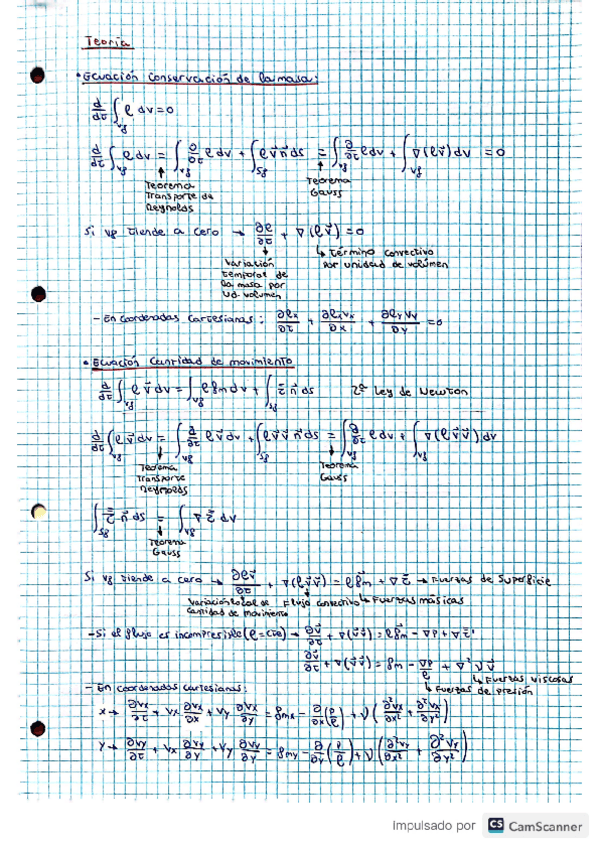 Teoría
• Ecuación conservación de la masa:
d/dt ∫_vf ρ dv = 0
d/dt ∫_vf ρ dv = ∫_vf ∂/∂t ρ dv + ∫_sf ρ v⃗ n⃗ ds = ∫_vf ∂/∂t ρ dv + ∫_vf ∇(ρ v⃗) dv = 0
Teorema Transporte de Reynolds
Teorema Gauss
Si vf tiende a cero → ∂ρ/∂t + ∇(ρ v⃗) = 0
↳ término convectivo por unidad de volúmen
Variación temporal de la masa por ud. volumen
- En coordenadas cartesianas: ∂ρx/∂t + ∂ρx vx/∂x + ∂ρy vy/∂y = 0
• Ecuación Cantidad de movimiento
d/dt ∫_vf ρ v⃗ dv = ∫_vf ρ fm dv + ∫_sf τ n⃗ ds 2ª Ley de Newton
d/dt ∫_vf ρ v⃗ dv = ∫_vf ∂/∂t ρ v⃗ dv + ∫_sf ρ v⃗ v⃗ n⃗ ds = ∫_vf ∂/∂t ρ dv + ∫_vf ∇(ρ v⃗ v⃗) dv
Teorema Transporte Reynolds
Teorema Gauss
∫_sf τ n⃗ ds = ∫_vf ∇ τ dv
Teorema Gauss
Si vf tiende a cero → ∂ρv⃗/∂t + ∇(ρ v⃗ v⃗) = ρ f⃗m + ∇ τ → Fuerzas de Superficie
Variación local de cantidad de movimiento
Flujo convectivo
↳ Fuerzas másicas
- Si el flujo es incompresible (ρ = cte) → ∂v⃗/∂t + ∇(v⃗ v⃗) = ρ f⃗m - ∇P + ∇ τ'
∂v⃗/∂t + ∇(v⃗ v⃗) = fm - ∇P/ρ + ∇² ν v⃗
↳ Fuerzas viscosas
↳ Fuerzas de presión
- En coordenadas cartesianas:
x → ∂vx/∂t + vx ∂vx/∂x + vy ∂vx/∂y = fmx - ∂/∂x (P/ρ) + ν (∂²vx/∂x² + ∂²vx/∂y²)
y → ∂vy/∂t + vx ∂vy/∂x + vy ∂vy/∂y = fmy - ∂/∂y (P/ρ) + ν (∂²vy/∂x² + ∂²vy/∂y²)
Impulsado por CS CamScanner